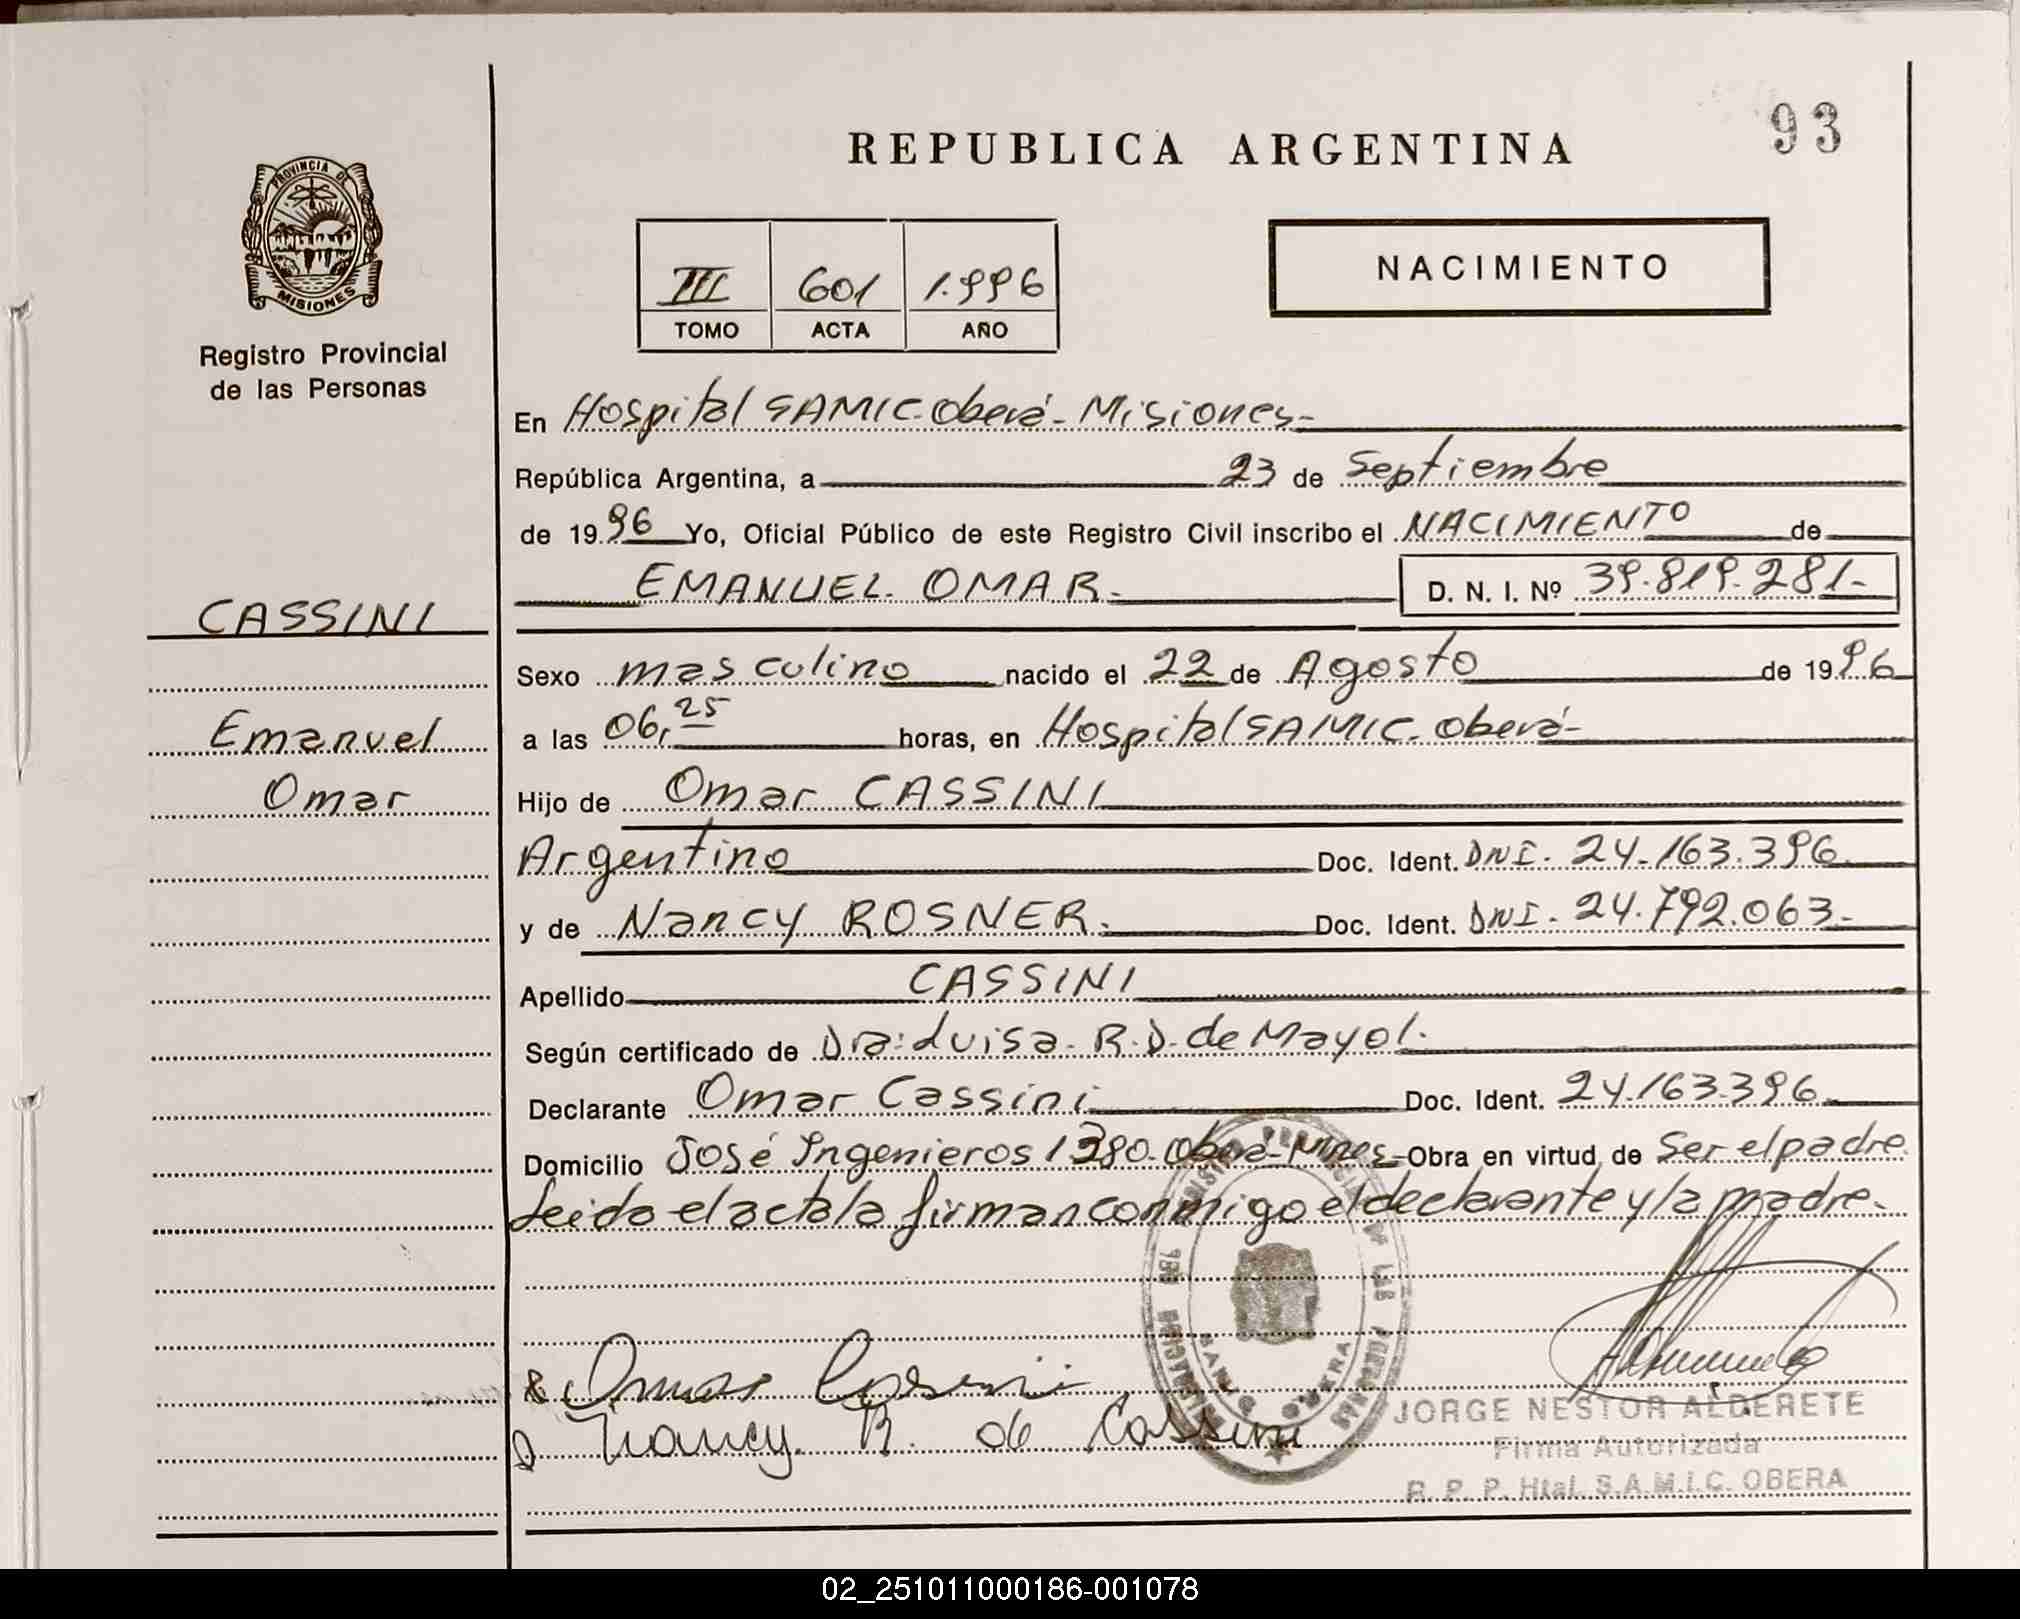 REPUBLICA ARGENTINA
93
PROVINCIA DE
MISIONES
Registro Provincial
de las Personas
NACIMIENTO
III 601 1.996
TOMO ACTA AÑO
En Hospital SAMIC. Oberá - Misiones-
República Argentina, a 23 de Septiembre
de 1996 Yo, Oficial Público de este Registro Civil inscribo el NACIMIENTO de
EMANUEL OMAR. D. N. I. Nº 39.819.281-
CASSINI
Emanuel
Omar
Sexo masculino nacido el 22 de Agosto de 1996
a las 06,25 horas, en Hospital SAMIC. Oberá-
Hijo de Omar CASSINI
Argentino Doc. Ident. DNI. 24.163.396
y de Nancy ROSNER. Doc. Ident. DNI. 24.792.063.-
Apellido CASSINI
Según certificado de Dra: Luisa. R. D. de Mayol.
Declarante Omar Cassini Doc. Ident. 24.163.396
Domicilio José Ingenieros 1380. Oberá-Mnes-Obra en virtud de Ser el padre.
Leida el acta la firman conmigo el declarante y la madre.
Omar Cassini
Nancy R. de Cassini
JORGE NESTOR ALDERETE
Firma Autorizada
R. P. P. Htal. S.A.M.I.C. OBERA
02_251011000186-001078